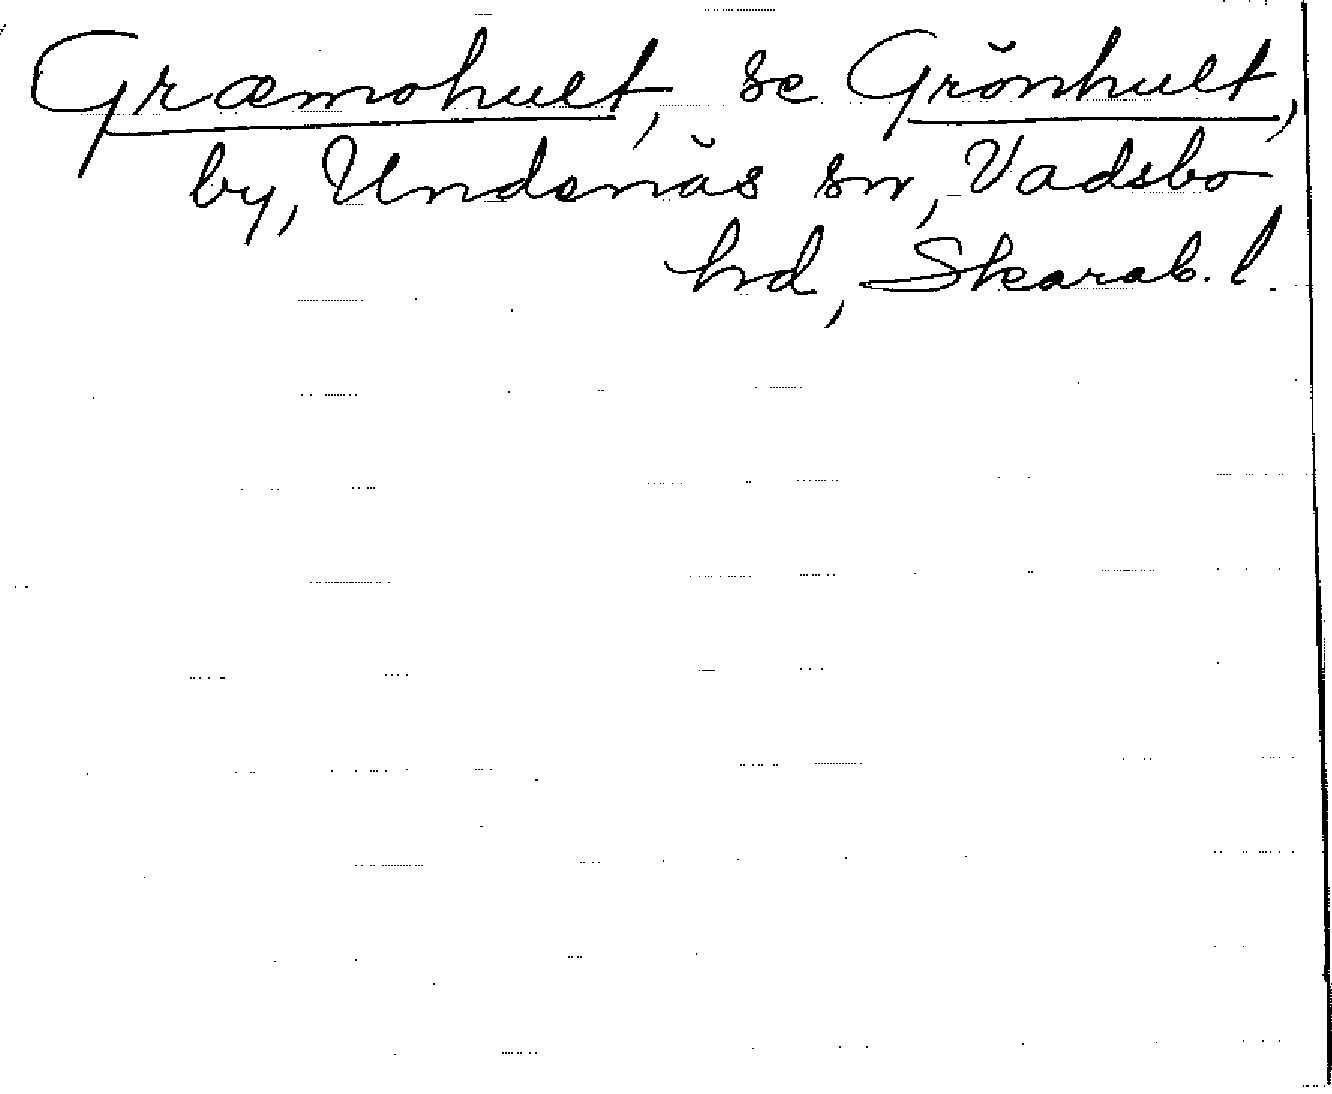 Græmohult, se Grönhult,
by, Undenäs sn, Vadsbo
hd, Skarab. l.